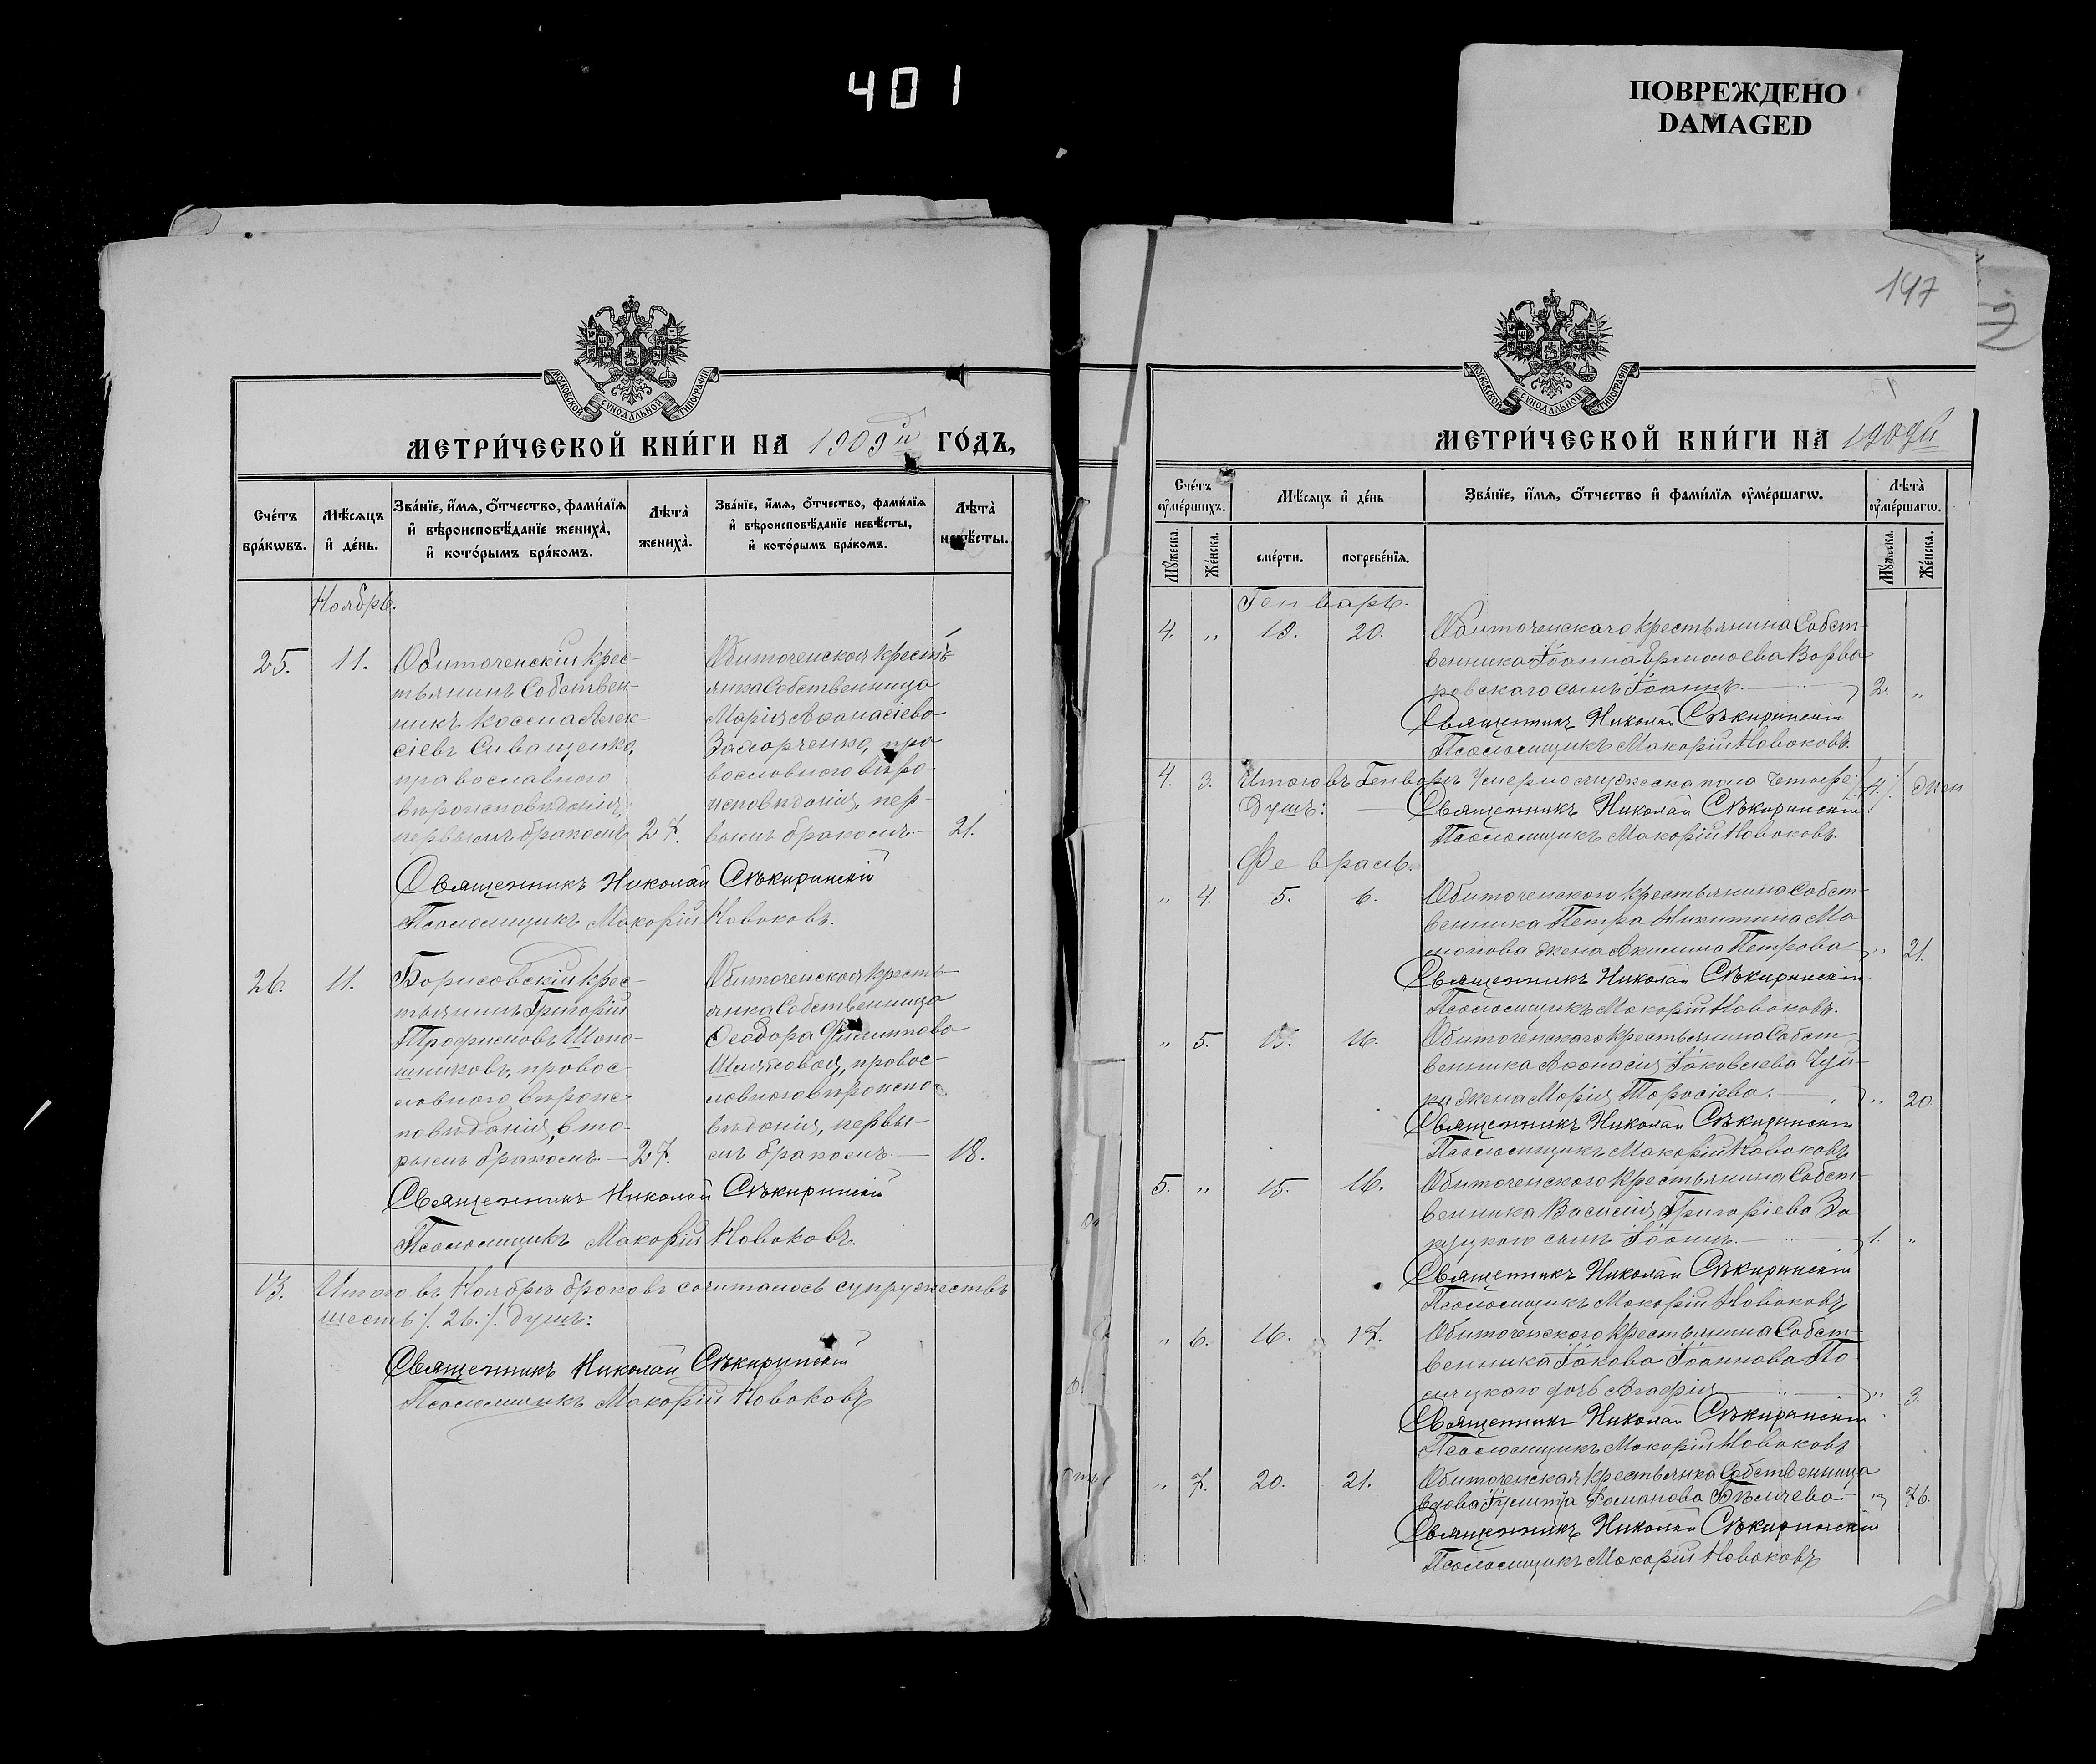 401
ПОВРЕЖДЕНО
DAMAGED
МОСКОВСКОЙ СѴНОДАЛЬНОЙ ТИПОГРАФІИ
МЕТРИ́ЧЕСКОЙ КНИ́ГИ НА 1909й ГО́ДЪ,
Сче́тъ бра́кωвъ.
Мѣ́сяцъ и҆ де́нь.
Зва́нїе, и҆́мѧ, ѻ҆́тчество, фами́лїѧ и҆ вѣроисповѣ́данїе жениха̀, и҆ кото́рымъ бра́комъ.
Лѣта̀ жениха̀.
Зва́нїе, и҆́мѧ, ѻ҆́тчество, фами́лїѧ и҆ вѣроисповѣ́данїе невѣ́сты, и҆ кото́рымъ бра́комъ.
Лѣта̀ невѣ́сты.
Ноябрь.
25. 11.
Обиточенскій крес-
тьянинъ Собствен-
никъ Косма Алек-
сіевъ Сиващенко,
православного
вѣроисповѣданія,
первымъ бракомъ 27.
Обиточенская кресть-
янка Собственница
Марія Афанасіева
пра
вославного вѣро
исповѣданія, пер-
вымъ бракомъ. — 21.
Священникъ Николай Сѣкиринскій
Псаломщикъ Макарій Новаковъ.
26. 11.
Борисовскій крес-
тьянинъ Григорій
Трофимовъ Шапо-
шниковъ, правос-
лавного вѣроис-
повѣданія, вто-
рымъ бракомъ. — 27.
Обиточенская кресть-
янка Собственница
Ѳеодора Филиппова
правос-
лавного вѣроиспо-
вѣданія, первы-
мъ бракомъ. — 18.
Священникъ Николай Сѣкиринскій
Псаломщикъ Макарій Новаковъ.
13. Итого въ Ноябрѣ браковъ сочиталось супружествъ
шесть /. 26. /. душъ:
Священникъ Николай Сѣкиринскій
Псаломщикъ Макарій Новаковъ
147
МОСКОВСКОЙ СѴНОДАЛЬНОЙ ТИПОГРАФІИ
МЕТРИ́ЧЕСКОЙ КНИ́ГИ НА 1909й
Сче́тъ ᲂу҆ме́ршихъ.
Мѣ́сяцъ и҆ де́нь
Зва́нїе, и҆́мѧ, ѻ҆́тчество и҆ фами́лїѧ ᲂу҆ме́ршагω.
Лѣта̀ ᲂу҆ме́ршагω.
Мꙋ́жеска.
Же́нска.
сме́рти.
погребе́нїѧ.
Мꙋ́жеска.
Же́нска.
Генварь.
4. „ 19. 20. Обиточенскаго крестьянина Собст-
венника Іоанна Ермолаева Варва
ровскаго сынъ Іоаннъ. — 2. „
Священникъ Николай Сѣкиринскій
Псаломщикъ Макарій Новаковъ.
4. 3. Итого въ Генварѣ умерло мужеска пола четыре /. 4. /. жен
душъ: Священникъ Николай Сѣкиринскій
Псаломщикъ Макарій Новаковъ.
Февраль.
„ 4. 5. 6. Обиточенского крестьянина Собст-
венника Петра Никитина Ма
монова жена Акилина Петрова „ 21.
Священникъ Николай Сѣкиринскій
Псаломщикъ Макарій Новаковъ.
„ 5. 15. 16. Обиточенского крестьянина Собст-
венника Афанасія Іаковлева
жена Марія Тарасіева. — „ 20.
Священникъ Николай Сѣкиринскій
Псаломщикъ Макарій Новаковъ
5. „ 15. 16. Обиточенского крестьянина Собст-
венника Василія Григоріева За
сынъ Іоаннъ. — 1. „
Священникъ Николай Сѣкиринскій
Псаломщикъ Макарій Новаковъ
„ 6. 16. 17. Обиточенского крестьянина Собст-
венника Іакова Іоаннова
дочь Агафія — „ 3.
Священникъ Николай Сѣкиринскій
Псаломщикъ Макарій Новаковъ
„ 7. 20. 21. Обиточенская крестьянка Собственница
вдова Іулитта Романова — „ 76.
Священникъ Николай Сѣкиринскій
Псаломщикъ Макарій Новаковъ